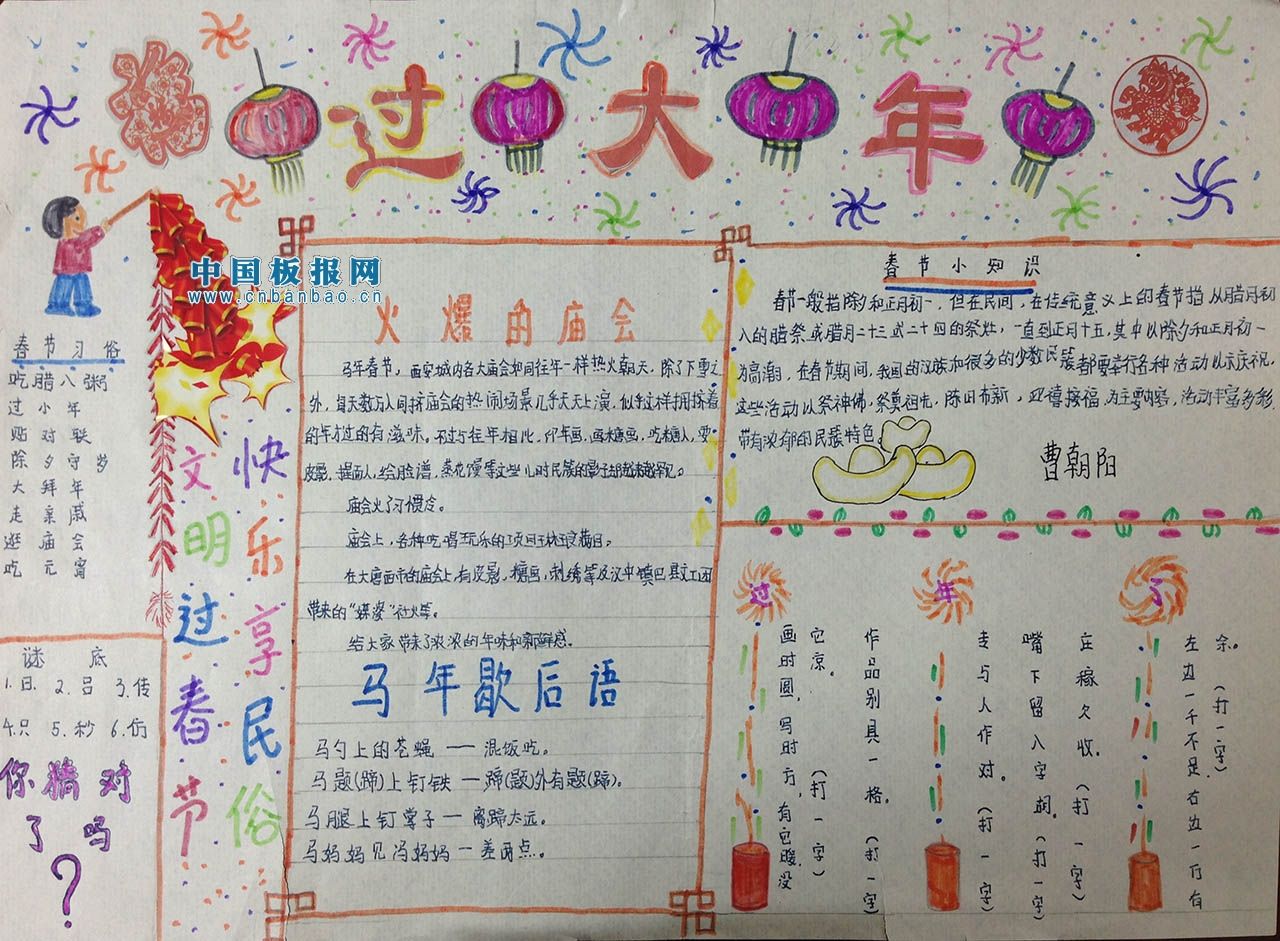 过大年
中国板报网
www.cnbanbao.cn
春节习俗
吃腊八粥
过小年
贴对联
除夕守岁
大拜年
走亲戚
逛庙会
吃元宵
谜底
1.日 2.吕 3.传
4.只 5.秒 6.衍
你猜对
了吗
?
文明过春节
快乐享民俗
火爆的庙会
马年春节，西安城内各大庙会如同往年一样热火朝天，除了下雪之
外，每天数万人同挤庙会的热闹场景几乎天天上演，似乎这样拥挤着
的年才过的有滋味。不过与往年相比，印年画，画糖画，吃糖人，耍
皮影，捏面人，绘脸谱，蒸花馍等这些儿时民族的影子却越来越罕见。
庙会火了习惯冷。
庙会上，各种吃喝玩乐的项目琳琅满目。
在大唐西市的庙会上，有皮影，糖画，刺绣等及汉中镇巴县文工团
带来的
社火等。
给大家带来了浓浓的年味和新鲜感。
马年歇后语
马勺上的苍蝇——混饭吃。
马题(蹄)上钉铁—蹄(题)外有题(蹄)。
马腿上钉掌子—离蹄太远。
马妈妈见冯妈妈—差两点。
春节小知识
春节一般指除夕和正月初一，但在民间，在传统意义上的春节指从腊月初
八的腊祭或腊月二十三或二十四的祭灶，一直到正月十五，其中以除夕和正月初一
为高潮，在春节期间，我国的汉族和很多的少数民族都要举行各种活动以示庆祝，
这些活动以祭神佛，祭奠祖先，除旧布新，迎禧接福为主要内容，活动丰富多彩，
带有浓郁的民族特色。
曹朝阳
过年了
画时圆，写时方，有它暖，没
它凉。(打一字)
作品别具一格。(打一字)
专与人作对。(打一字)
嘴下留入字洞。(打一字)
庄稼欠收。(打一字)
左边一千不足，右边一行有
余。(打一字)